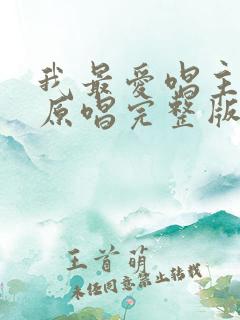 我最愛唱主
原唱完整版
王首萌
未经同意禁止转载